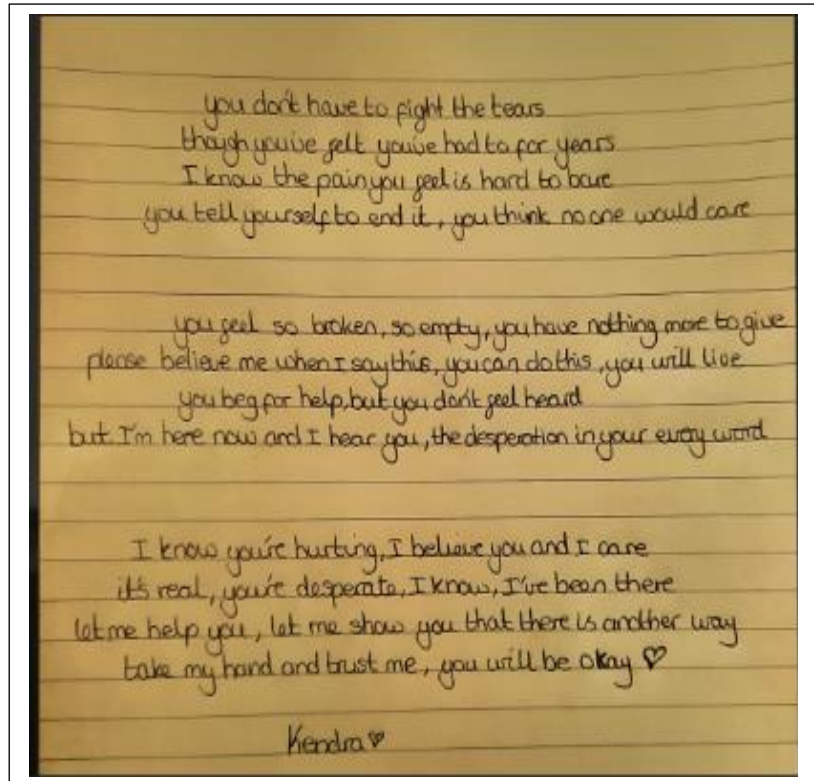 you don't have to fight the tears
though you've felt you've had to for years
I know the pain you feel is hard to bare
you tell yourself to end it, you think no one would care
you feel so broken, so empty, you have nothing more to give
please believe me when I say this, you can do this, you will live
you beg for help, but you don't feel heard
but I'm here now and I hear you, the desperation in your every word
I know you're hurting, I believe you and I care
it's real, you're desperate, I know, I've been there
let me help you, let me show you that there is another way
take my hand and trust me, you will be okay ♡
Kendra ♡